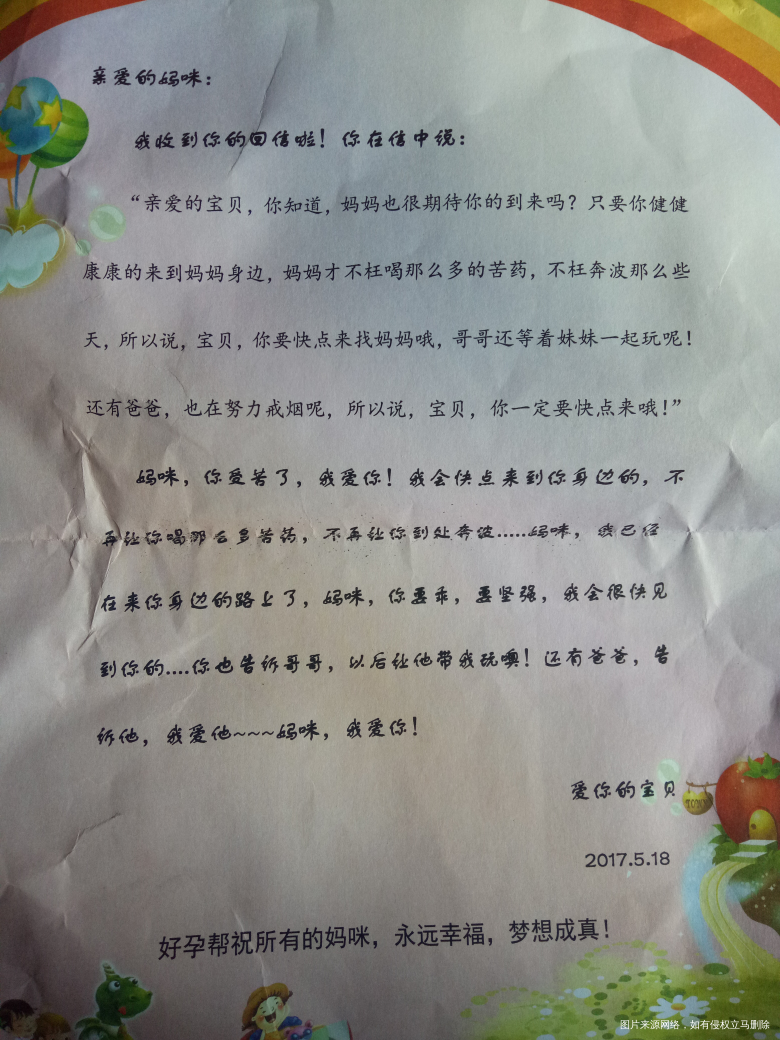 亲爱的妈咪：
我收到你的回信啦！你在信中说：
“亲爱的宝贝，你知道，妈妈也很期待你的到来吗？只要你健健
康康的来到妈妈身边，妈妈才不枉喝那么多的苦药，不枉奔波那么些
天，所以说，宝贝，你要快点来找妈妈哦，哥哥还等着妹妹一起玩呢！
还有爸爸，也在努力戒烟呢，所以说，宝贝，你一定要快点来哦！”
妈咪，你受苦了，我爱你！我会快点来到你身边的，不
再让你喝那么多苦药，不再让你到处奔波.....妈咪，我已经
在来你身边的路上了，妈咪，你要乖，要坚强，我会很快见
到你的....你也告诉哥哥，以后让他带我玩噢！还有爸爸，告
诉他，我爱他~~~妈咪，我爱你！
爱你的宝贝
2017.5.18
好孕帮祝所有的妈咪，永远幸福，梦想成真！
图片来源网络，如有侵权立马删除